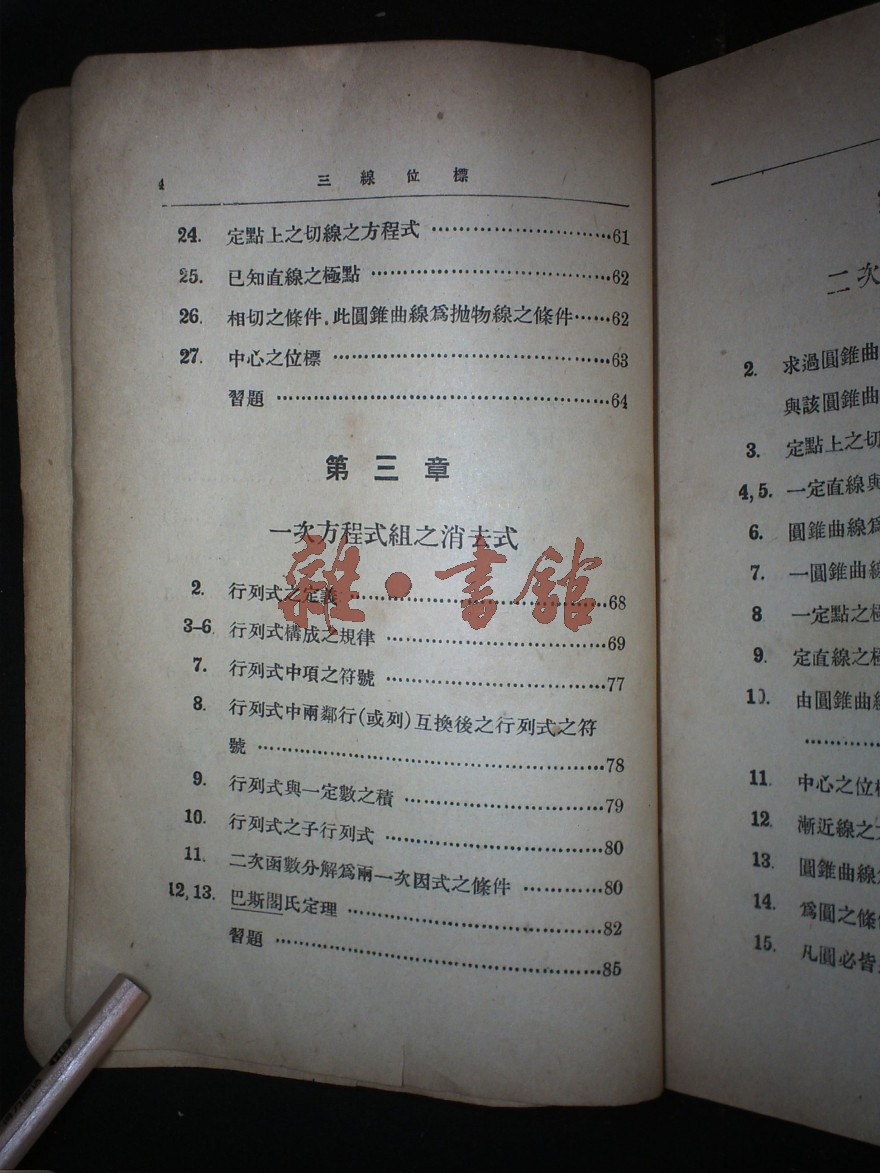 4 三線位標
24. 定點上之切線之方程式 ……………………61
25. 已知直線之極點 ……………………62
26. 相切之條件,此圓錐曲線爲拋物線之條件……62
27. 中心之位標 ……………………63
習題 ……………………64
第三章
一次方程式組之消去式
2. 行列式之定義 ……………………68
3–6. 行列式構成之規律 ……………………69
7. 行列式中項之符號 ……………………77
8. 行列式中兩鄰行(或列)互換後之行列式之符
號 ……………………78
9. 行列式與一定數之積 ……………………79
10. 行列式之子行列式 ……………………80
11. 二次函數分解爲兩一次因式之條件 …………80
12, 13. 巴斯閣氏定理 ……………………82
習題 ……………………85
雜·書館
二次
2. 求過圓錐曲
與該圓錐曲
3. 定點上之切
4, 5. 一定直線與
6. 圓錐曲線爲
7. 一圓錐曲線
8 一定點之極
9. 定直線之極
10. 由圓錐曲線
…………
11. 中心之位標
12. 漸近線之
13. 圓錐曲線
14. 爲圓之條
15. 凡圓必皆